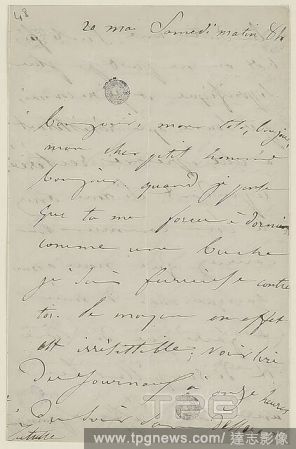 48
20 mai Samedi matin 8h
Bonjour, mon toto, bonjour
mon cher petit homme
bonjour quand je pense
que tu me forces à dormir
comme une buche
je suis furieuse contre
toi. Le moyen en effet
est irrésistible; voir lire
du journaux à onze heures
du soir
TPG
www.tpgnews.com / 達志影像